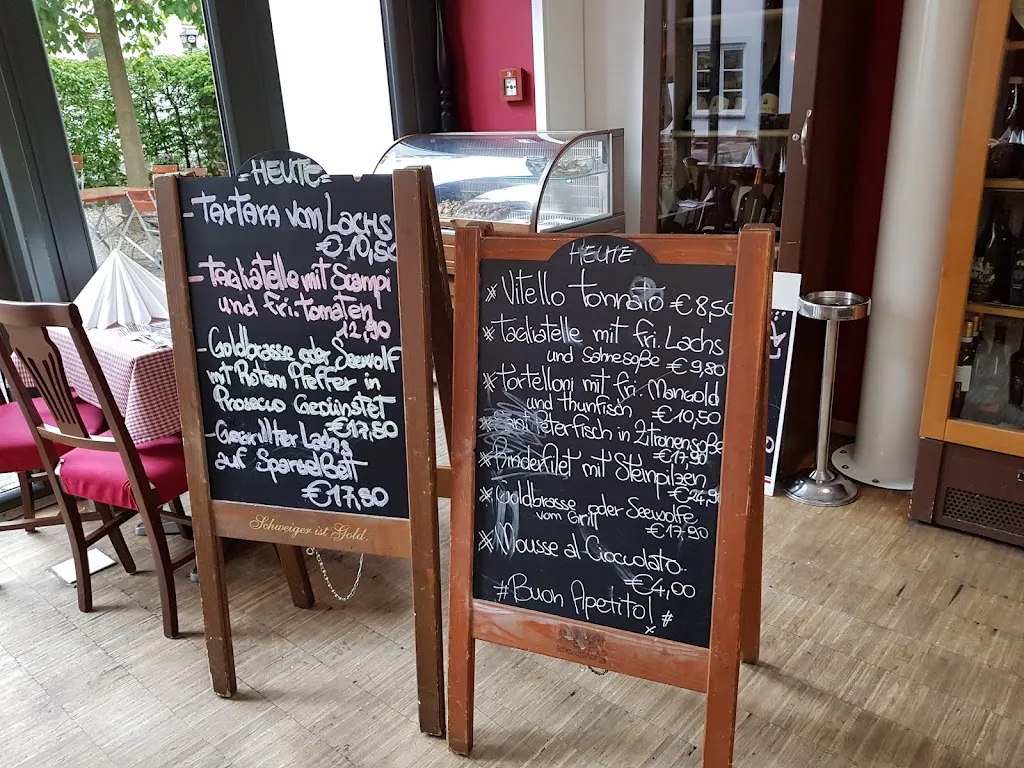 =HEUTE=
- TARTARA vom LACHS
€ 10,50
- Tagliatelle mit Scampi
und fri. Tomaten
12,90
- Goldbrasse oder Seewolf
mit Rotem Pfeffer in
Prosecco Gedünstet
€17,50
- Gegrillter Lachs
auf Spargelbett
€17,50
Schweiger ist Gold.
HEUTE
* Vitello tonnato € 8,50
* Tagliatelle mit fri. Lachs
und Sahnesoße € 9,80
* Tortelloni mit fri. Mangold
und thunfisch €10,50
* Sant Peterfisch in Zitronensoße
€17,90
* Rinderfilet mit Steinpilzen
€24,90
* Goldbrasse oder Seewolfe
vom Grill €17,90
* Mousse al Cioccolato
€4,00
# Buon Apetito! #